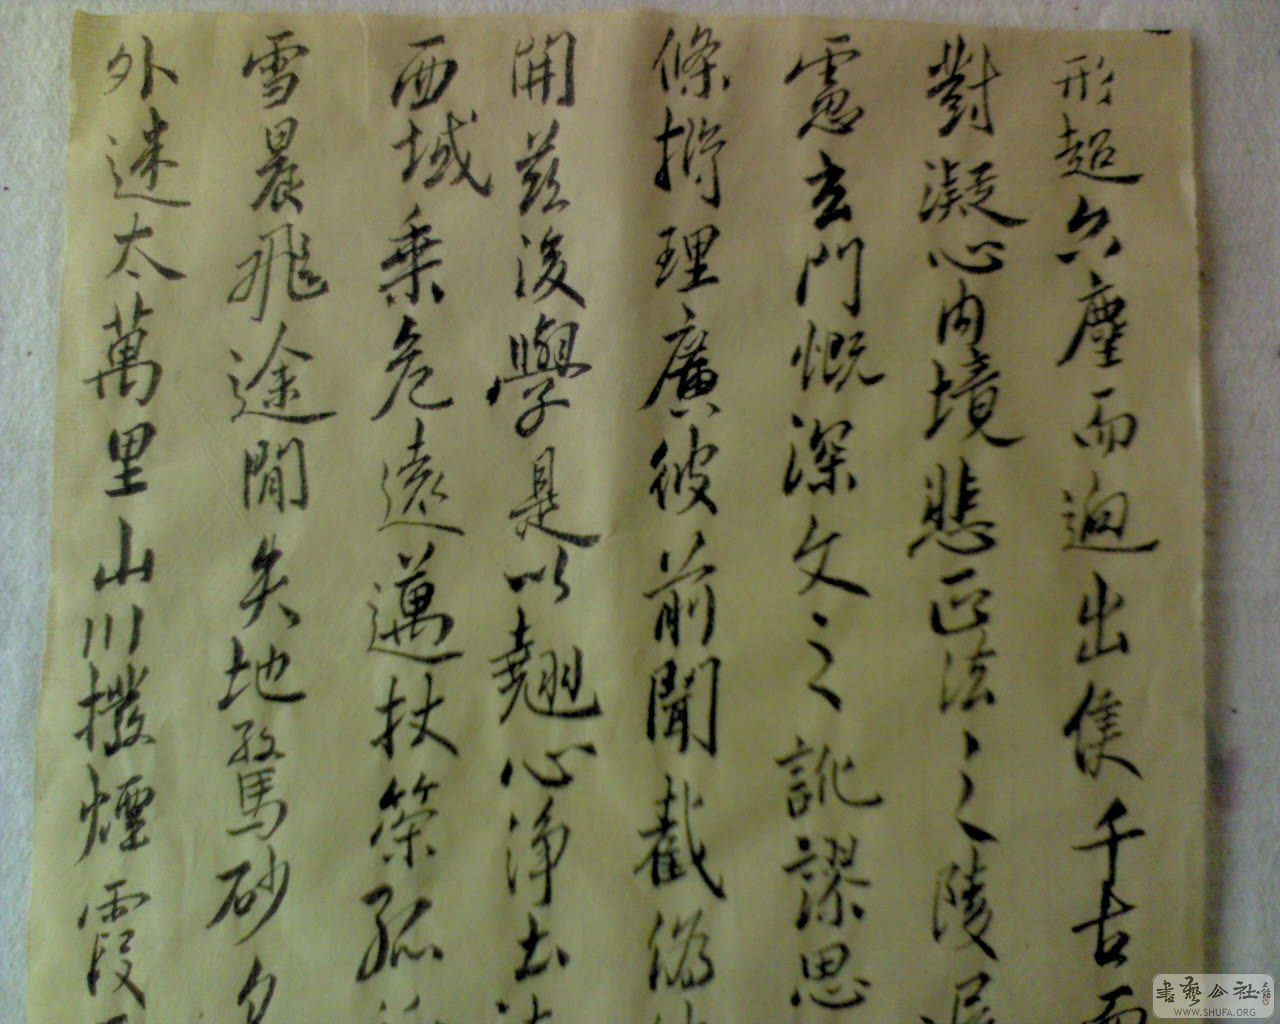 形超六塵而迥出隻千古而
對凝心內境悲正法之陵遲
慮玄門慨深文之訛謬思
條析理廣彼前聞截偽
開茲後學是以翹心淨土
西域乘危遠邁杖策孤
雪晨飛途閒失地驚砂夕
外迷太萬里山川撥煙霞
書藝公社
WWW.SHUFA.ORG